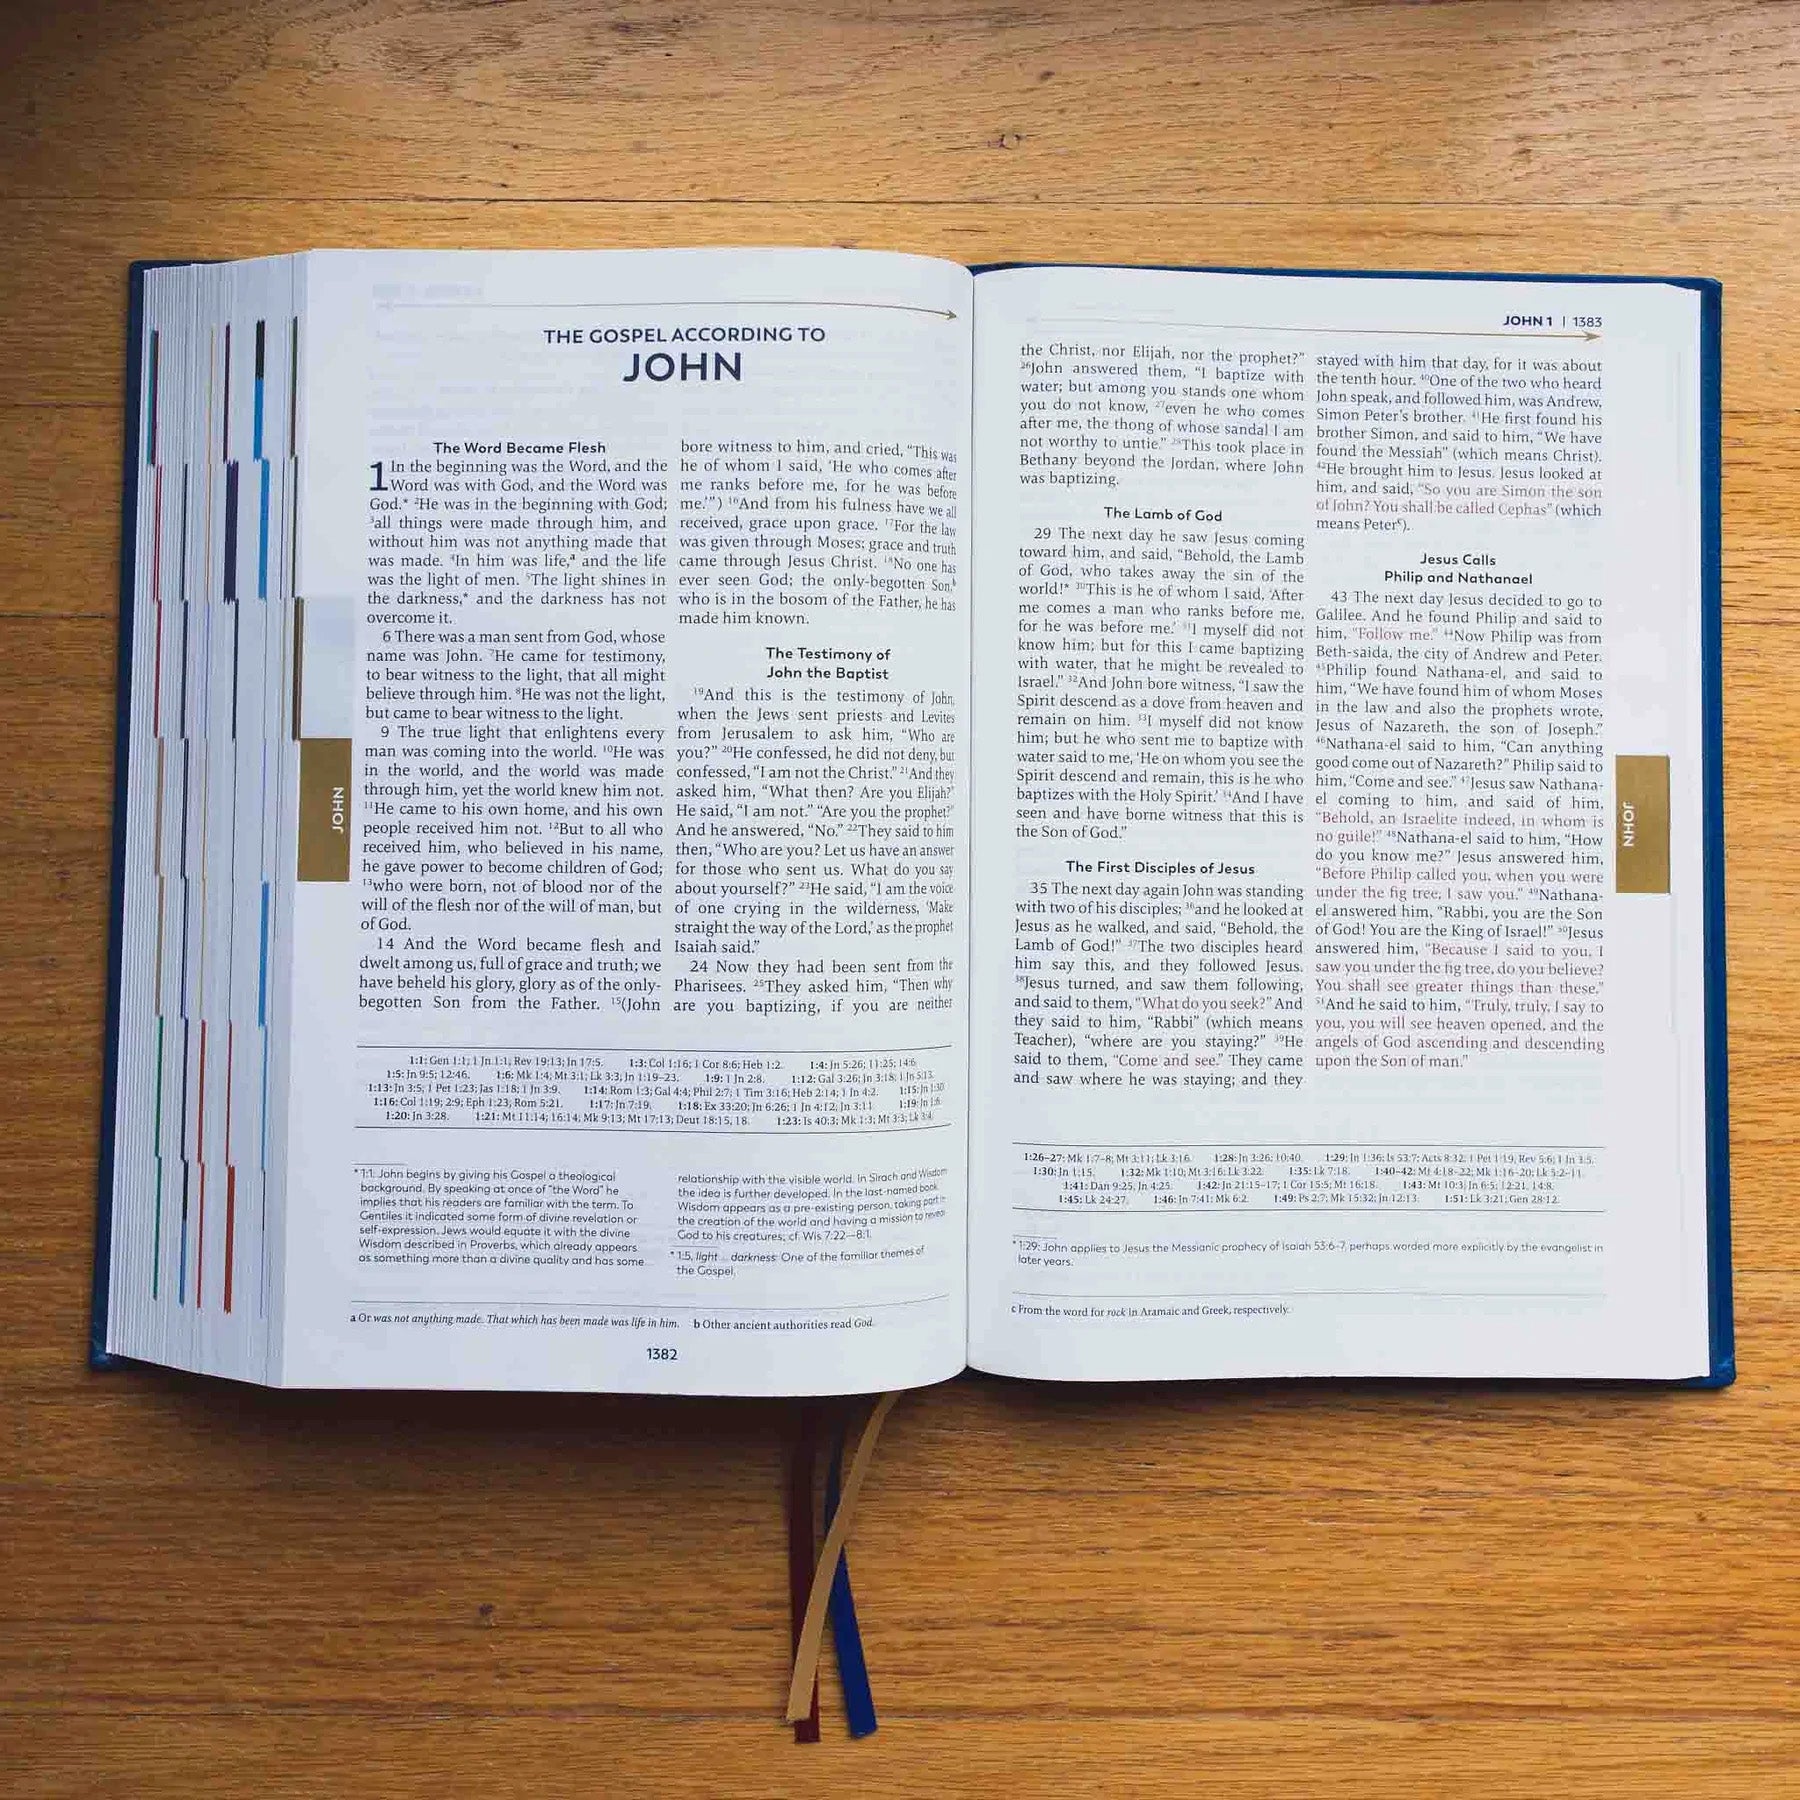 THE GOSPEL ACCORDING TO
JOHN
The Word Became Flesh
1 In the beginning was the Word, and the
Word was with God, and the Word was
God.* ²He was in the beginning with God;
³all things were made through him, and
without him was not anything made that
was made. ⁴In him was life,ᵃ and the life
was the light of men. ⁵The light shines in
the darkness,* and the darkness has not
overcome it.
6 There was a man sent from God, whose
name was John. ⁷He came for testimony,
to bear witness to the light, that all might
believe through him. ⁸He was not the light,
but came to bear witness to the light.
9 The true light that enlightens every
man was coming into the world. ¹⁰He was
in the world, and the world was made
through him, yet the world knew him not.
¹¹He came to his own home, and his own
people received him not. ¹²But to all who
received him, who believed in his name,
he gave power to become children of God;
¹³who were born, not of blood nor of the
will of the flesh nor of the will of man, but
of God.
14 And the Word became flesh and
dwelt among us, full of grace and truth; we
have beheld his glory, glory as of the only-
begotten Son from the Father. ¹⁵(John
bore witness to him, and cried, “This was
he of whom I said, ‘He who comes after
me ranks before me, for he was before
me.’”) ¹⁶And from his fulness have we all
received, grace upon grace. ¹⁷For the law
was given through Moses; grace and truth
came through Jesus Christ. ¹⁸No one has
ever seen God; the only-begotten Son,ᵇ
who is in the bosom of the Father, he has
made him known.
The Testimony of
John the Baptist
¹⁹And this is the testimony of John,
when the Jews sent priests and Levites
from Jerusalem to ask him, “Who are
you?” ²⁰He confessed, he did not deny, but
confessed, “I am not the Christ.” ²¹And they
asked him, “What then? Are you Elijah?”
He said, “I am not.” “Are you the prophet?”
And he answered, “No.” ²²They said to him
then, “Who are you? Let us have an answer
for those who sent us. What do you say
about yourself?” ²³He said, “I am the voice
of one crying in the wilderness, ‘Make
straight the way of the Lord,’ as the prophet
Isaiah said.”
24 Now they had been sent from the
Pharisees. ²⁵They asked him, “Then why
are you baptizing, if you are neither
JOHN
1:1: Gen 1:1; 1 Jn 1:1; Rev 19:13; Jn 17:5. 1:3: Col 1:16; 1 Cor 8:6; Heb 1:2. 1:4: Jn 5:26; 11:25; 14:6.
1:5: Jn 9:5; 12:46. 1:6: Mk 1:4; Mt 3:1; Lk 3:3; Jn 1:19–23. 1:9: 1 Jn 2:8. 1:12: Gal 3:26; Jn 3:18; 1 Jn 5:13.
1:13: Jn 3:5; 1 Pet 1:23; Jas 1:18; 1 Jn 3:9. 1:14: Rom 1:3; Gal 4:4; Phil 2:7; 1 Tim 3:16; Heb 2:14; 1 Jn 4:2. 1:15: Jn 1:30.
1:16: Col 1:19; 2:9; Eph 1:23; Rom 5:21. 1:17: Jn 7:19. 1:18: Ex 33:20; Jn 6:26; 1 Jn 4:12; Jn 3:11. 1:19: Jn 1:6.
1:20: Jn 3:28. 1:21: Mt 11:14; 16:14; Mk 9:13; Mt 17:13; Deut 18:15, 18. 1:23: Is 40:3; Mk 1:3; Mt 3:3; Lk 3:4.
* 1:1: John begins by giving his Gospel a theological
background. By speaking at once of “the Word” he
implies that his readers are familiar with the term. To
Gentiles it indicated some form of divine revelation or
self-expression. Jews would equate it with the divine
Wisdom described in Proverbs, which already appears
as something more than a divine quality and has some
relationship with the visible world. In Sirach and Wisdom
the idea is further developed. In the last-named book
Wisdom appears as a pre-existing person, taking part in
the creation of the world and having a mission to reveal
God to his creatures; cf. Wis 7:22—8:1.
* 1:5, light ... darkness: One of the familiar themes of
the Gospel.
a Or was not anything made. That which has been made was life in him. b Other ancient authorities read God.
1382
JOHN 1 | 1383
the Christ, nor Elijah, nor the prophet?”
²⁶John answered them, “I baptize with
water; but among you stands one whom
you do not know, ²⁷even he who comes
after me, the thong of whose sandal I am
not worthy to untie.” ²⁸This took place in
Bethany beyond the Jordan, where John
was baptizing.
The Lamb of God
29 The next day he saw Jesus coming
toward him, and said, “Behold, the Lamb
of God, who takes away the sin of the
world!* ³⁰This is he of whom I said, ‘After
me comes a man who ranks before me,
for he was before me.’ ³¹I myself did not
know him; but for this I came baptizing
with water, that he might be revealed to
Israel.” ³²And John bore witness, “I saw the
Spirit descend as a dove from heaven and
remain on him. ³³I myself did not know
him; but he who sent me to baptize with
water said to me, ‘He on whom you see the
Spirit descend and remain, this is he who
baptizes with the Holy Spirit.’ ³⁴And I have
seen and have borne witness that this is
the Son of God.”
The First Disciples of Jesus
35 The next day again John was standing
with two of his disciples; ³⁶and he looked at
Jesus as he walked, and said, “Behold, the
Lamb of God!” ³⁷The two disciples heard
him say this, and they followed Jesus.
³⁸Jesus turned, and saw them following,
and said to them, “What do you seek?” And
they said to him, “Rabbi” (which means
Teacher), “where are you staying?” ³⁹He
said to them, “Come and see.” They came
and saw where he was staying; and they
stayed with him that day, for it was about
the tenth hour. ⁴⁰One of the two who heard
John speak, and followed him, was Andrew,
Simon Peter’s brother. ⁴¹He first found his
brother Simon, and said to him, “We have
found the Messiah” (which means Christ).
⁴²He brought him to Jesus. Jesus looked at
him, and said, “So you are Simon the son
of John? You shall be called Cephas” (which
means Peterᶜ).
Jesus Calls
Philip and Nathanael
43 The next day Jesus decided to go to
Galilee. And he found Philip and said to
him, “Follow me.” ⁴⁴Now Philip was from
Beth-saida, the city of Andrew and Peter.
⁴⁵Philip found Nathana-el, and said to
him, “We have found him of whom Moses
in the law and also the prophets wrote,
Jesus of Nazareth, the son of Joseph.”
⁴⁶Nathana-el said to him, “Can anything
good come out of Nazareth?” Philip said to
him, “Come and see.” ⁴⁷Jesus saw Nathana-
el coming to him, and said of him,
“Behold, an Israelite indeed, in whom is
no guile!” ⁴⁸Nathana-el said to him, “How
do you know me?” Jesus answered him,
“Before Philip called you, when you were
under the fig tree, I saw you.” ⁴⁹Nathana-
el answered him, “Rabbi, you are the Son
of God! You are the King of Israel!” ⁵⁰Jesus
answered him, “Because I said to you, I
saw you under the fig tree, do you believe?
You shall see greater things than these.”
⁵¹And he said to him, “Truly, truly, I say to
you, you will see heaven opened, and the
angels of God ascending and descending
upon the Son of man.”
JOHN
1:26–27: Mk 1:7–8; Mt 3:11; Lk 3:16. 1:28: Jn 3:26; 10:40. 1:29: Jn 1:36; Is 53:7; Acts 8:32; 1 Pet 1:19; Rev 5:6; 1 Jn 3:5.
1:30: Jn 1:15. 1:32: Mk 1:10; Mt 3:16; Lk 3:22. 1:35: Lk 7:18. 1:40–42: Mt 4:18–22; Mk 1:16–20; Lk 5:2–11.
1:41: Dan 9:25; Jn 4:25. 1:42: Jn 21:15–17; 1 Cor 15:5; Mt 16:18. 1:43: Mt 10:3; Jn 6:5; 12:21; 14:8.
1:45: Lk 24:27. 1:46: Jn 7:41; Mk 6:2. 1:49: Ps 2:7; Mk 15:32; Jn 12:13. 1:51: Lk 3:21; Gen 28:12.
* 1:29: John applies to Jesus the Messianic prophecy of Isaiah 53:6–7, perhaps worded more explicitly by the evangelist in
later years.
c From the word for rock in Aramaic and Greek, respectively.